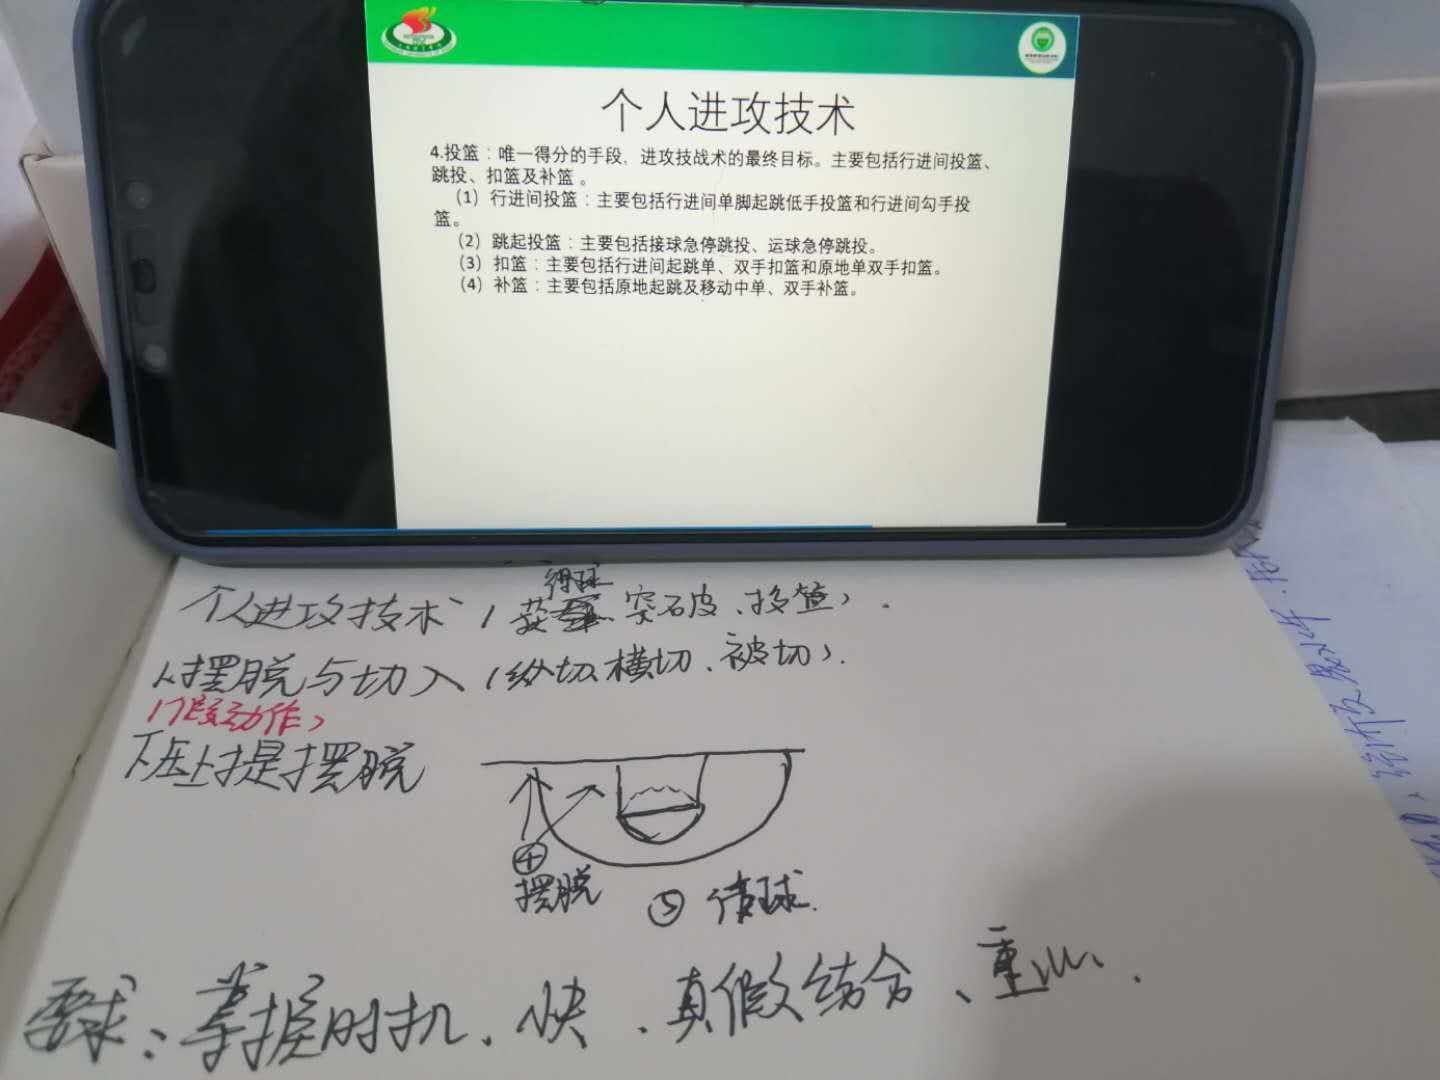 个人进攻技术
4.投篮：唯一得分的手段，进攻技战术的最终目标。主要包括行进间投篮、
跳投、扣篮及补篮 。
（1）行进间投篮：主要包括行进间单脚起跳低手投篮和行进间勾手投
篮。
（2）跳起投篮：主要包括接球急停跳投、运球急停跳投。
（3）扣篮：主要包括行进间起跳单、双手扣篮和原地单双手扣篮。
（4）补篮：主要包括原地起跳及移动中单、双手补篮。
得球
个人进攻技术（突破、投篮）.
1、摆脱与切入（纵切、横切、被切）.
（假动作）
下压上提摆脱
④
摆脱
⑤ 传球.
要求：掌握时机、快、真假结合、重心、.